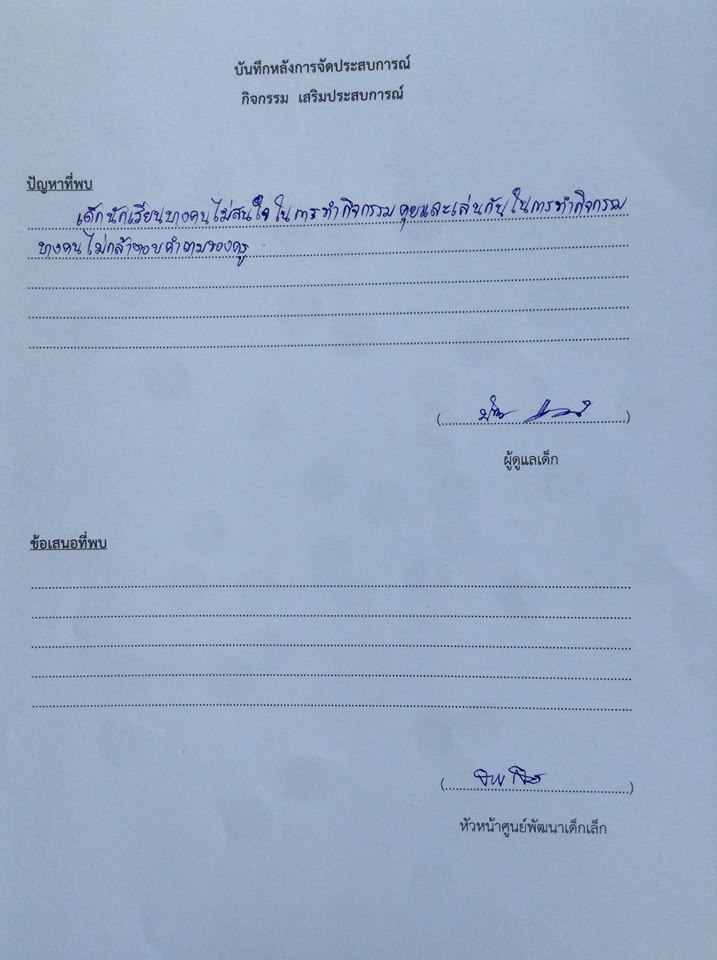 บันทึกหลังการจัดประสบการณ์
กิจกรรม เสริมประสบการณ์
ปัญหาที่พบ
เด็กนักเรียนบางคนไม่สนใจในการทำกิจกรรม คุยและเล่นกันในการทำกิจกรรม
บางคนไม่กล้าตอบคำถามของครู
(........................................)
ผู้ดูแลเด็ก
ข้อเสนอที่พบ
(........................................)
หัวหน้าศูนย์พัฒนาเด็กเล็ก